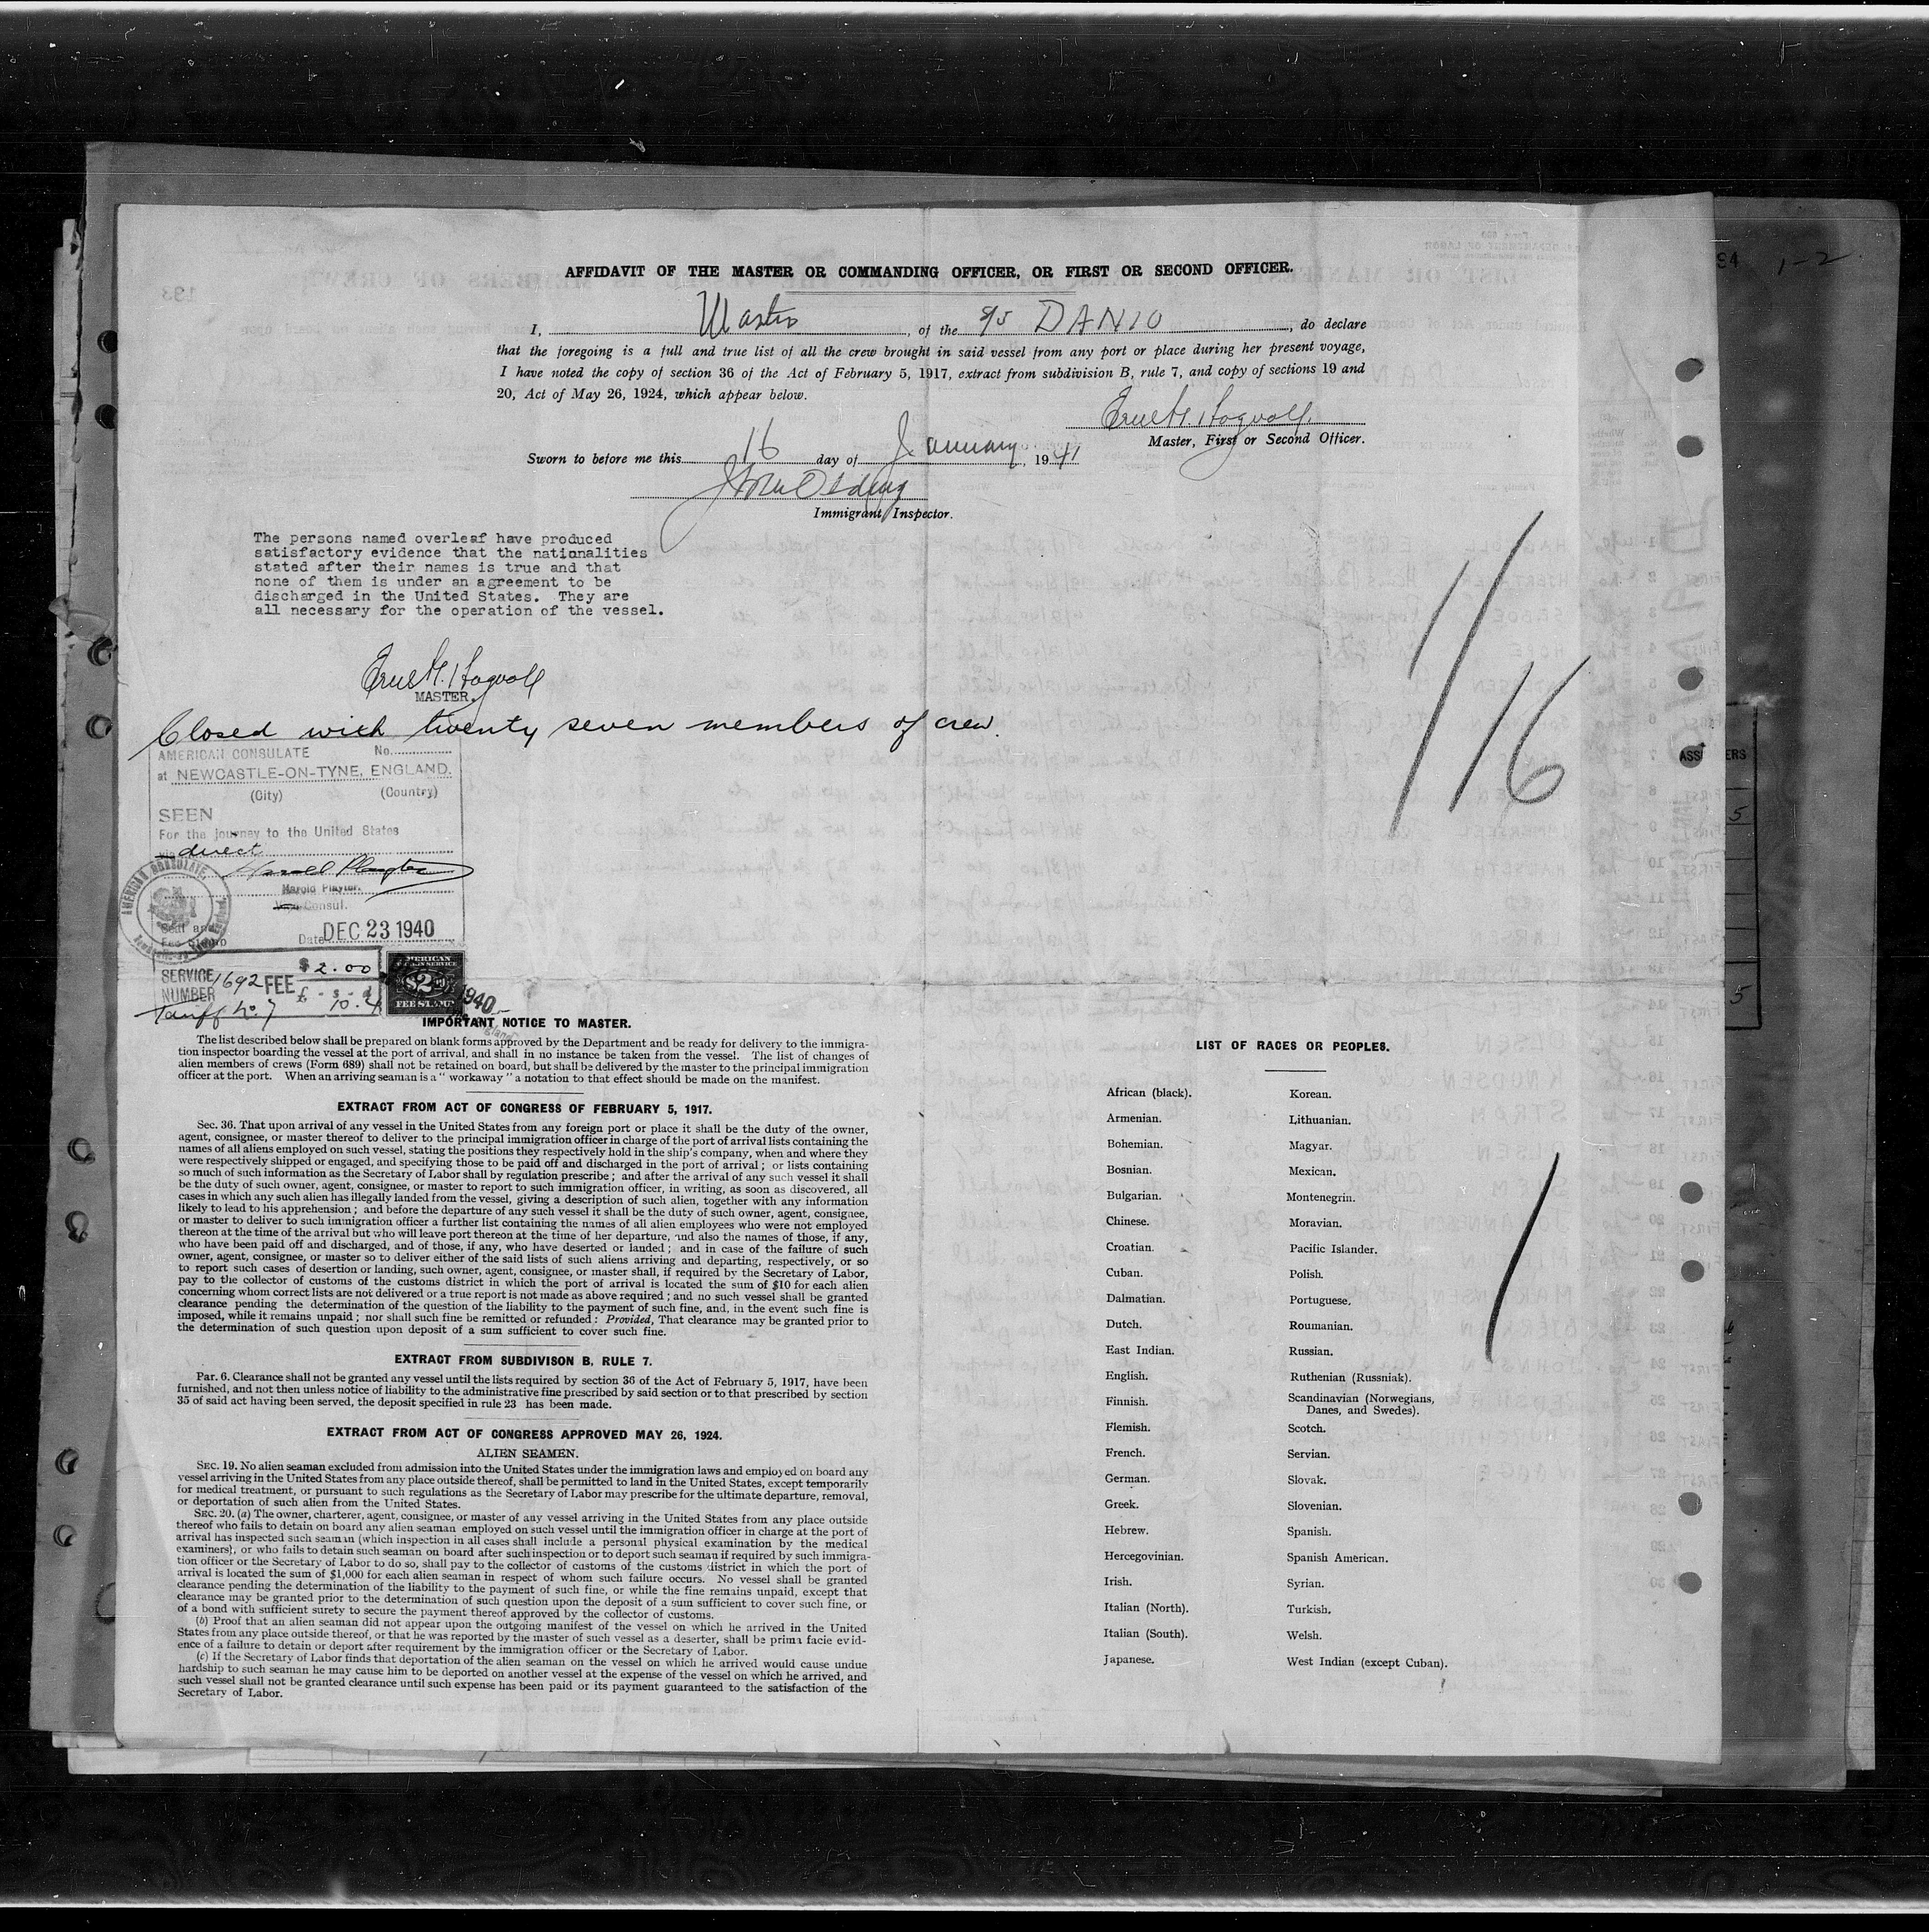 AFFIDAVIT OF THE MASTER OR COMMANDING OFFICER, OR FIRST OR SECOND OFFICER.
I, Master, of the S/S DANIO, do declare
that the foregoing is a full and true list of all the crew brought in said vessel from any port or place during her present voyage,
I have noted the copy of section 36 of the Act of February 5, 1917, extract from subdivision B, rule 7, and copy of sections 19 and
20, Act of May 26, 1924, which appear below.
Master, First or Second Officer.
Sworn to before me this 16 day of January, 1941
Immigrant Inspector.
The persons named overleaf have produced
satisfactory evidence that the nationalities
stated after their names is true and that
none of them is under an agreement to be
discharged in the United States. They are
all necessary for the operation of the vessel.
MASTER.
Closed with twenty seven members of crew.
1/16
94 1-2
AMERICAN CONSULATE No.
at NEWCASTLE-ON-TYNE, ENGLAND.
(City) (Country)
SEEN
For the journey to the United States
via direct
Harold Playter
Harold Playter.
Vice Consul.
Date DEC 23 1940
AMERICAN CONSULATE
Seal and
Fee Stamp
SERVICE NUMBER 1692 FEE $ 2.00
£ - s - d
10. 4
Tariff No. 7
FEE STAMP
IMPORTANT NOTICE TO MASTER.
The list described below shall be prepared on blank forms approved by the Department and be ready for delivery to the immigra-
tion inspector boarding the vessel at the port of arrival, and shall in no instance be taken from the vessel. The list of changes of
alien members of crews (Form 689) shall not be retained on board, but shall be delivered by the master to the principal immigration
officer at the port. When an arriving seaman is a " workaway " a notation to that effect should be made on the manifest.
EXTRACT FROM ACT OF CONGRESS OF FEBRUARY 5, 1917.
Sec. 36. That upon arrival of any vessel in the United States from any foreign port or place it shall be the duty of the owner,
agent, consignee, or master thereof to deliver to the principal immigration officer in charge of the port of arrival lists containing the
names of all aliens employed on such vessel, stating the positions they respectively hold in the ship's company, when and where they
were respectively shipped or engaged, and specifying those to be paid off and discharged in the port of arrival ; or lists containing
so much of such information as the Secretary of Labor shall by regulation prescribe ; and after the arrival of any such vessel it shall
be the duty of such owner, agent, consignee, or master to report to such immigration officer, in writing, as soon as discovered, all
cases in which any such alien has illegally landed from the vessel, giving a description of such alien, together with any information
likely to lead to his apprehension ; and before the departure of any such vessel it shall be the duty of such owner, agent, consignee,
or master to deliver to such immigration officer a further list containing the names of all alien employees who were not employed
thereon at the time of the arrival but who will leave port thereon at the time of her departure, and also the names of those, if any,
who have been paid off and discharged, and of those, if any, who have deserted or landed ; and in case of the failure of such
owner, agent, consignee, or master so to deliver either of the said lists of such aliens arriving and departing, respectively, or so
to report such cases of desertion or landing, such owner, agent, consignee, or master shall, if required by the Secretary of Labor,
pay to the collector of customs of the customs district in which the port of arrival is located the sum of $10 for each alien
concerning whom correct lists are not delivered or a true report is not made as above required ; and no such vessel shall be granted
clearance pending the determination of the question of the liability to the payment of such fine, and, in the event such fine is
imposed, while it remains unpaid ; nor shall such fine be remitted or refunded : Provided, That clearance may be granted prior to
the determination of such question upon deposit of a sum sufficient to cover such fine.
EXTRACT FROM SUBDIVISON B, RULE 7.
Par. 6. Clearance shall not be granted any vessel until the lists required by section 36 of the Act of February 5, 1917, have been
furnished, and not then unless notice of liability to the administrative fine prescribed by said section or to that prescribed by section
35 of said act having been served, the deposit specified in rule 23 has been made.
EXTRACT FROM ACT OF CONGRESS APPROVED MAY 26, 1924.
ALIEN SEAMEN.
SEC. 19. No alien seaman excluded from admission into the United States under the immigration laws and employed on board any
vessel arriving in the United States from any place outside thereof, shall be permitted to land in the United States, except temporarily
for medical treatment, or pursuant to such regulations as the Secretary of Labor may prescribe for the ultimate departure, removal,
or deportation of such alien from the United States.
SEC. 20. (a) The owner, charterer, agent, consignee, or master of any vessel arriving in the United States from any place outside
thereof who fails to detain on board any alien seaman employed on such vessel until the immigration officer in charge at the port of
arrival has inspected such seaman (which inspection in all cases shall include a personal physical examination by the medical
examiners), or who fails to detain such seaman on board after such inspection or to deport such seaman if required by such immigra-
tion officer or the Secretary of Labor to do so, shall pay to the collector of customs of the customs district in which the port of
arrival is located the sum of $1,000 for each alien seaman in respect of whom such failure occurs. No vessel shall be granted
clearance pending the determination of the liability to the payment of such fine, or while the fine remains unpaid, except that
clearance may be granted prior to the determination of such question upon the deposit of a sum sufficient to cover such fine, or
of a bond with sufficient surety to secure the payment thereof approved by the collector of customs.
(b) Proof that an alien seaman did not appear upon the outgoing manifest of the vessel on which he arrived in the United
States from any place outside thereof, or that he was reported by the master of such vessel as a deserter, shall be prima facie evid-
ence of a failure to detain or deport after requirement by the immigration officer or the Secretary of Labor.
(c) If the Secretary of Labor finds that deportation of the alien seaman on the vessel on which he arrived would cause undue
hardship to such seaman he may cause him to be deported on another vessel at the expense of the vessel on which he arrived, and
such vessel shall not be granted clearance until such expense has been paid or its payment guaranteed to the satisfaction of the
Secretary of Labor.
LIST OF RACES OR PEOPLES.
African (black).
Armenian.
Bohemian.
Bosnian.
Bulgarian.
Chinese.
Croatian.
Cuban.
Dalmatian.
Dutch.
East Indian.
English.
Finnish.
Flemish.
French.
German.
Greek.
Hebrew.
Hercegovinian.
Irish.
Italian (North).
Italian (South).
Japanese.
Korean.
Lithuanian.
Magyar.
Mexican.
Montenegrin.
Moravian.
Pacific Islander.
Polish.
Portuguese.
Roumanian.
Russian.
Ruthenian (Russniak).
Scandinavian (Norwegians,
Danes, and Swedes).
Scotch.
Servian.
Slovak.
Slovenian.
Spanish.
Spanish American.
Syrian.
Turkish.
Welsh.
West Indian (except Cuban).